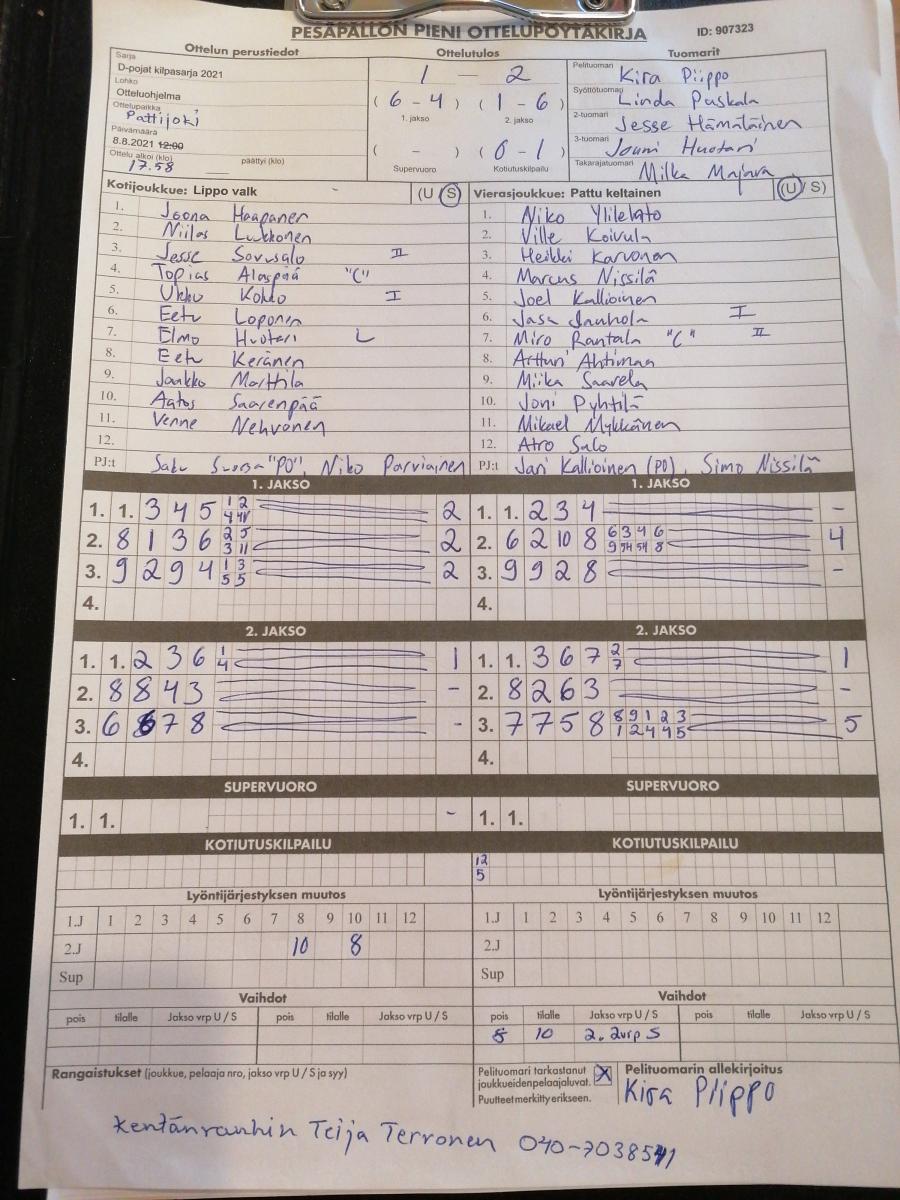 PESÄPALLON PIENI OTTELUPÖYTÄKIRJA ID: 907323
Ottelun perustiedot Ottelutulos Tuomarit
Sarja
D-pojat kilpasarja 2021
Lohko
Otteluohjelma
Ottelupaikka
Pattijoki
Päivämäärä
8.8.2021 12:00
Ottelu alkoi (klo) päättyi (klo)
17.58
1 — 2
( 6 - 4 ) ( 1 - 6 )
1. jakso 2. jakso
( - ) ( 0 - 1 )
Supervuoro Kotiutuskilpailu
Pelituomari Kira Piippo
Syöttötuomari Linda Puskala
2-tuomari Jesse Hämäläinen
3-tuomari Jouni Huotari
Takarajatuomari Milka Majava
Kotijoukkue: Lippo valk - (U S)
1. Joona Haapanen
2. Niilas Lukkonen
3. Jesse Sovusalo II
4. Topias Alaspää "C"
5. Ukko Kohlo I
6. Eetu Loponen
7. Elmo Huotari L
8. Eetu Keränen
9. Jaakko Marttila
10. Aatos Saarenpää
11. Venne Nehvonen
12.
PJ:t Saku Suorsa "PO", Niko Parviainen
Vierasjoukkue: Pattu keltainen (U / S)
1. Niko Ylilehto
2. Ville Koivula
3. Heikki Karvonen
4. Marcus Nissilä
5. Joel Kallioinen
6. Jasa Jauhola I
7. Miro Rantala "C" II
8. Artturi Ahtimaa
9. Miika Saarela
10. Joni Pyhtilä
11. Mikael Mykkänen
12. Atro Salo
PJ:t Jari Kallioinen (PO), Simo Nissilä
1. JAKSO 1. JAKSO
1. 1. 3 4 5 1 2 2
4
2. 8 1 3 6 2 5 2
3 11
3. 9 2 9 4 1 3 2
5 5
4.
1. 1. 2 3 4 -
2. 6 2 10 8 6 3 4 6 4
9 8
3. 9 9 2 8 -
4.
2. JAKSO 2. JAKSO
1. 1. 2 3 6 1 1
4
2. 8 8 4 3 -
3. 6 6 7 8 -
4.
1. 1. 3 6 7 2 1
7
2. 8 2 6 3 -
3. 7 7 5 8 8 9 1 2 3 5
1 2 4 4 5
4.
SUPERVUORO SUPERVUORO
1. 1. - 1. 1.
KOTIUTUSKILPAILU KOTIUTUSKILPAILU
12
5
Lyöntijärjestyksen muutos Lyöntijärjestyksen muutos
1.J 1 2 3 4 5 6 7 8 9 10 11 12 1.J 1 2 3 4 5 6 7 8 9 10 11 12
2.J 10 8 2.J
Sup Sup
Vaihdot Vaihdot
pois tilalle Jakso vrp U / S pois tilalle Jakso vrp U / S pois tilalle Jakso vrp U / S pois tilalle Jakso vrp U / S
8 10 2. 2vrp S
Rangaistukset (joukkue, pelaaja nro, jakso vrp U / S ja syy)
Pelituomari tarkastanut
joukkueidenpelaajaluvat. X
Puutteet merkitty erikseen.
Pelituomarin allekirjoitus
Kira Piippo
Kentänvanhin Teija Terronen